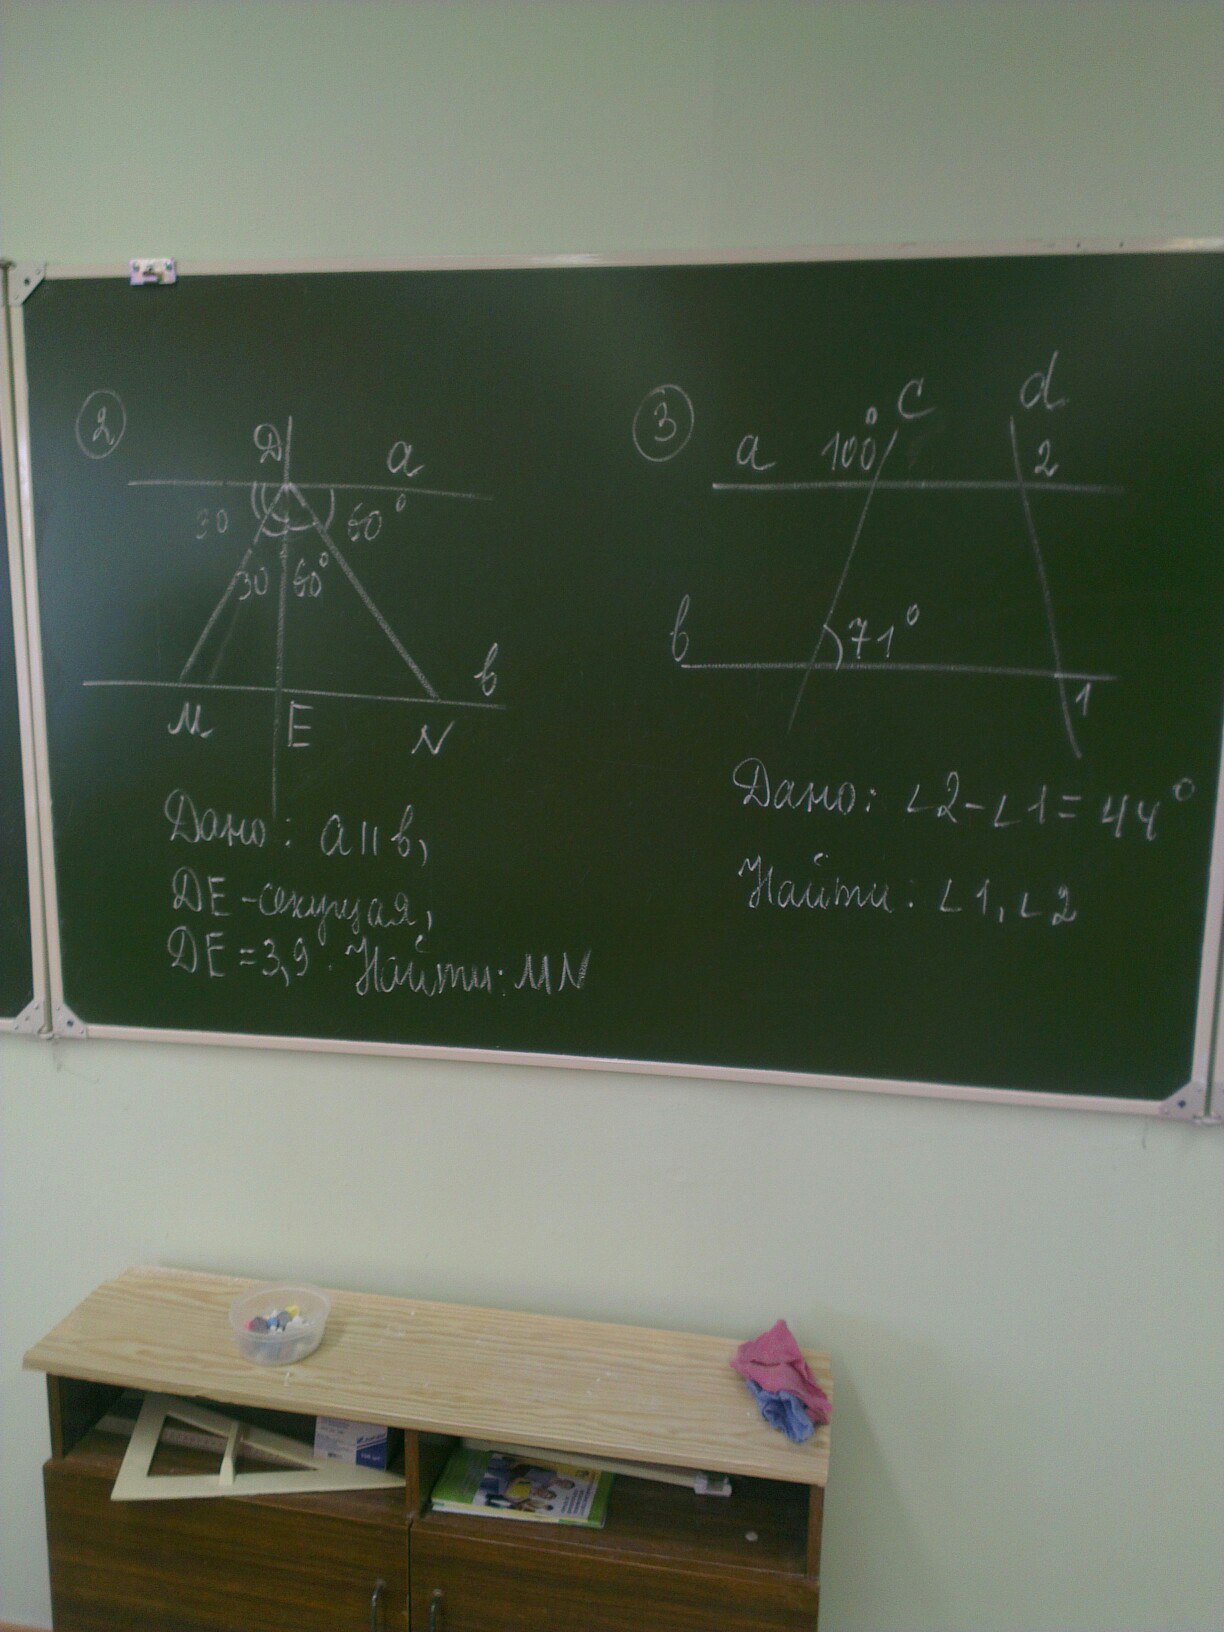 2
D
a
30
60°
30
60°
b
M
E
N
Дано: a || b,
DE - секущая,
DE = 3,9. Найти: MN
3
C
d
a
100°
2
b
71°
1
Дано: ∠2 - ∠1 = 44°
Найти: ∠1, ∠2